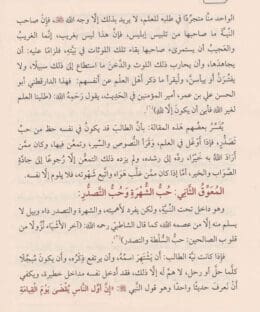 الواحد منَّا متجرِّدًا في طلبه للعلم، لا يريد بذلك إلَّا وجه الله ﷻ، فإنَّ صاحب
النيَّة ما صاحبها من تلبيس إبليس، فإنَّ هذا ليس بغريب، إنَّما الغريبُ
والعَجيبُ أن يستمرئ صاحبها بقاء تلك اللوثات في نيَّتِه، فلزامًا عليه: أن
يجاهدها، وأن يحارب ذلك اللوث والدَّخَن ما استطاع إلى ذلك سبيلًا، ولا
يفتُرَنَّ أو ييأسنَّ، وليقرأ ما ذكر أهل العلم عن أنفسهم: فهذا الدارقطني أبو
الحسن علي بن عمر، أمير المؤمنين في الحديث، يقول رَحِمَهُ اللهُ: (طلبنا العلم
لغير الله فأبى أن يكونَ إلَّا لله)
يُفسِّر بعضهم هذه المقالة: بأنَّ الطالب قد يكونُ في نفسه حظ من حبِّ
تصدُّرٍ، فإذا أوغل في العلم، وقرأ النصوص والسير، وتمعَّن فيها، وكان ممَّن
أراد اللهُ به خيرًا، ردَّه إلى رشده، ولم يزده ذلك التمعُّن إلَّا رجوعًا إلى جادَّة
الصَّواب والخير، أمَّا إذا كان ممَّن غلب هَواهُ واتَّبع شَهوته، فلا يلوم إلَّا نفسه.
المُعوِّق الثَّاني: حُبُّ الشُّهْرةِ وَحُبُّ التَّصدُّرِ:
وهو داخل تحت النيَّة، ولكن يفرد لأهميته، والشهرة والتصدر داء وبيل لا
يسلم منه إلَّا من عصمه الله، كما قال الشاطبيُّ رحمه الله: (آخر الأشياء نُزولًا من
قلوب الصالحين: حبُّ السُّلطة والتصدُّر)
فإذا كانت نيَّة الطالب: أن يشتهر اسمهُ، وأن يرتفع ذِكرُه، وأن يكونَ مُبجَّلًا
كلَّما حلَّ أو رحل، لا همَّ له إلَّا ذلك، فقد أدخل نفسه مداخل خطيرة، ويكفي
أن نعرف حديثًا واحدًا وهو قول النبي ﷺ: «إنَّ أوَّل النَّاسِ يُقْضَى يَومَ القِيَامَةِ